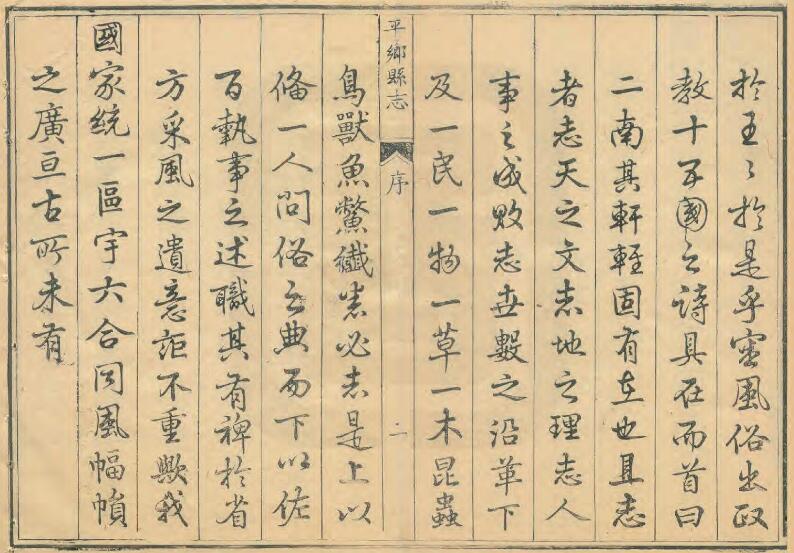 於王〻於是乎審風俗出政
教十五國之詩具在而首曰
二南其軒輊固有在也且志
者志天之文志地之理志人
事之成敗志世數之沿革下
及一民一物一草一木昆蟲
平鄉縣志
序
二
鳥獸魚鱉纖悉必志是上以
俻一人問俗之典而下以佐
百執事之述職其有裨於省
方采風之遺意詎不重歟我
國家統一區宇六合同風幅幀
之廣亘古所未有